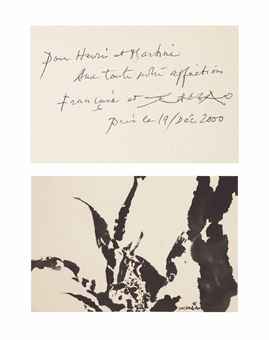 Pour Henri et Martine
Avec toute notre affection
Françoise et ZAO
Paris le 19/Déc 2000